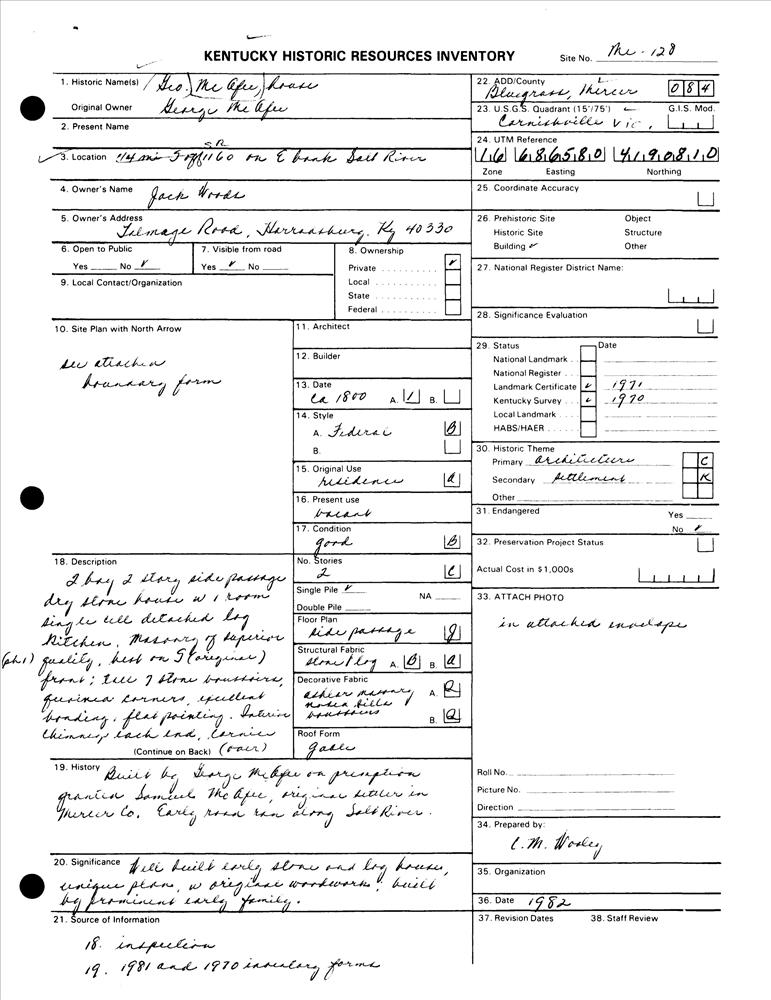 KENTUCKY HISTORIC RESOURCES INVENTORY
Site No. Me-128
1. Historic Name(s) (Geo.) McAfee, house
Original Owner George McAfee
2. Present Name
3. Location 1/4 mi S off SR 1160 on E bank Salt River
4. Owner's Name Jack Woods
5. Owner's Address
Talmage Road, Harrodsburg, Ky 40330
6. Open to Public
Yes No ✓
7. Visible from road
Yes ✓ No
8. Ownership
Private ✓
Local
State
Federal
9. Local Contact/Organization
10. Site Plan with North Arrow
see attached
boundary form
11. Architect
12. Builder
13. Date
ca 1800 A. 1 B.
14. Style
A. Federal B
B.
15. Original Use
residence a
16. Present use
vacant
17. Condition
good B
No. Stories
2 C
Single Pile ✓ NA
Double Pile
Floor Plan
side passage g
Structural Fabric
stone/log A. B B. a
Decorative Fabric
ashlar masonry A. Q
B. Q
voussoirs
Roof Form
gable
18. Description
2 bay 2 story side passage
dry stone house w 1 room
single cell detached log
kitchen. Masonry of superior
(ph 1) quality, best on S (original)
front; tall 7 stone voussoirs,
quoined corners, excellent
bonding, flat pointing. Interior
chimney each end, cornice
(Continue on Back) (over)
19. History Built by George McAfee on premption
granted Samuel McAfee, original settler in
Mercer Co. Early road ran along Salt River.
20. Significance Well built early stone and log house,
unique plan, w original woodwork, built
by prominent early family.
21. Source of Information
18. inspection
19. 1981 and 1970 inventory forms
22. ADD/County
Bluegrass, Mercer 084
23. U.S.G.S. Quadrant (15'/75') G.I.S. Mod.
Cornishville Vic.
24. UTM Reference
16 686580 4190810
Zone Easting Northing
25. Coordinate Accuracy
26. Prehistoric Site Object
Historic Site Structure
Building ✓ Other
27. National Register District Name:
28. Significance Evaluation
29. Status Date
National Landmark
National Register
Landmark Certificate ✓ 1971
Kentucky Survey ✓ 1970
Local Landmark
HABS/HAER
30. Historic Theme
Primary architecture C
Secondary settlement K
Other
31. Endangered Yes
No ✓
32. Preservation Project Status
Actual Cost in $1,000s
33. ATTACH PHOTO
in attached envelope
Roll No.
Picture No.
Direction
34. Prepared by:
C.M. Wooley
35. Organization
36. Date 1982
37. Revision Dates 38. Staff Review